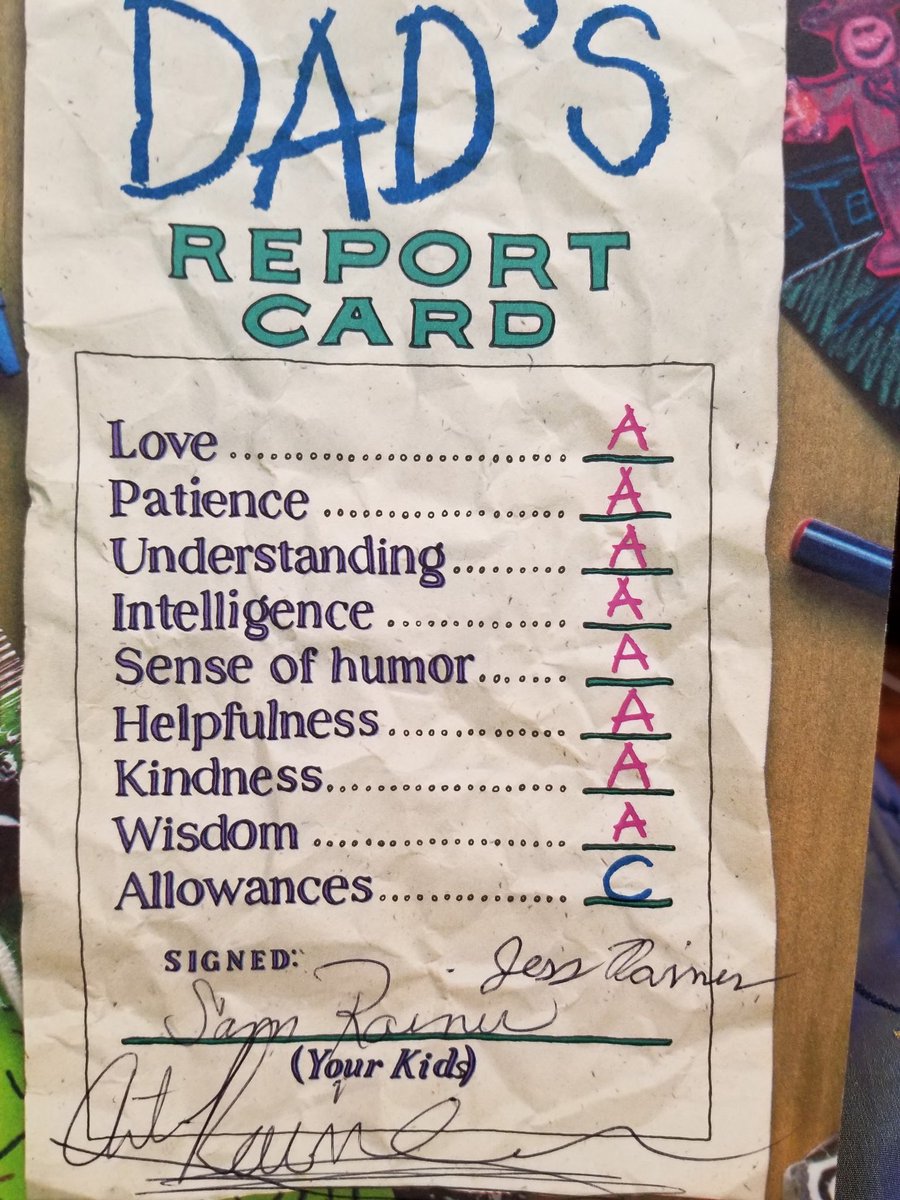 DAD'S
REPORT
CARD
Love .............................. A
Patience ..................... A
Understanding......... A
Intelligence ............... A
Sense of humor....... A
Helpfulness .............. A
Kindness.................... A
Wisdom ..................... A
Allowances............... C
SIGNED: Jess Rainer
Sam Rainer
(Your Kids)
Art Rainer